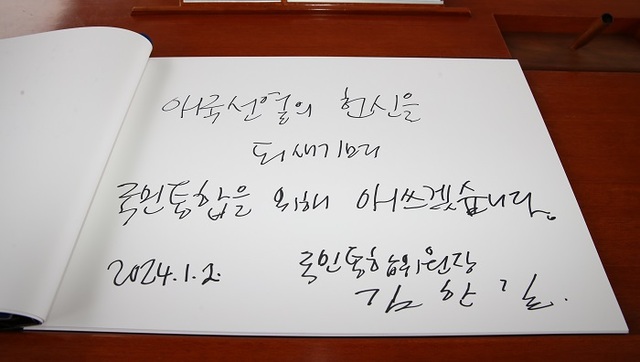 애국선열의 헌신을
되새기며
국민통합을 위해 애쓰겠습니다.
2024.1.2. 국민통합위원장
김한길.